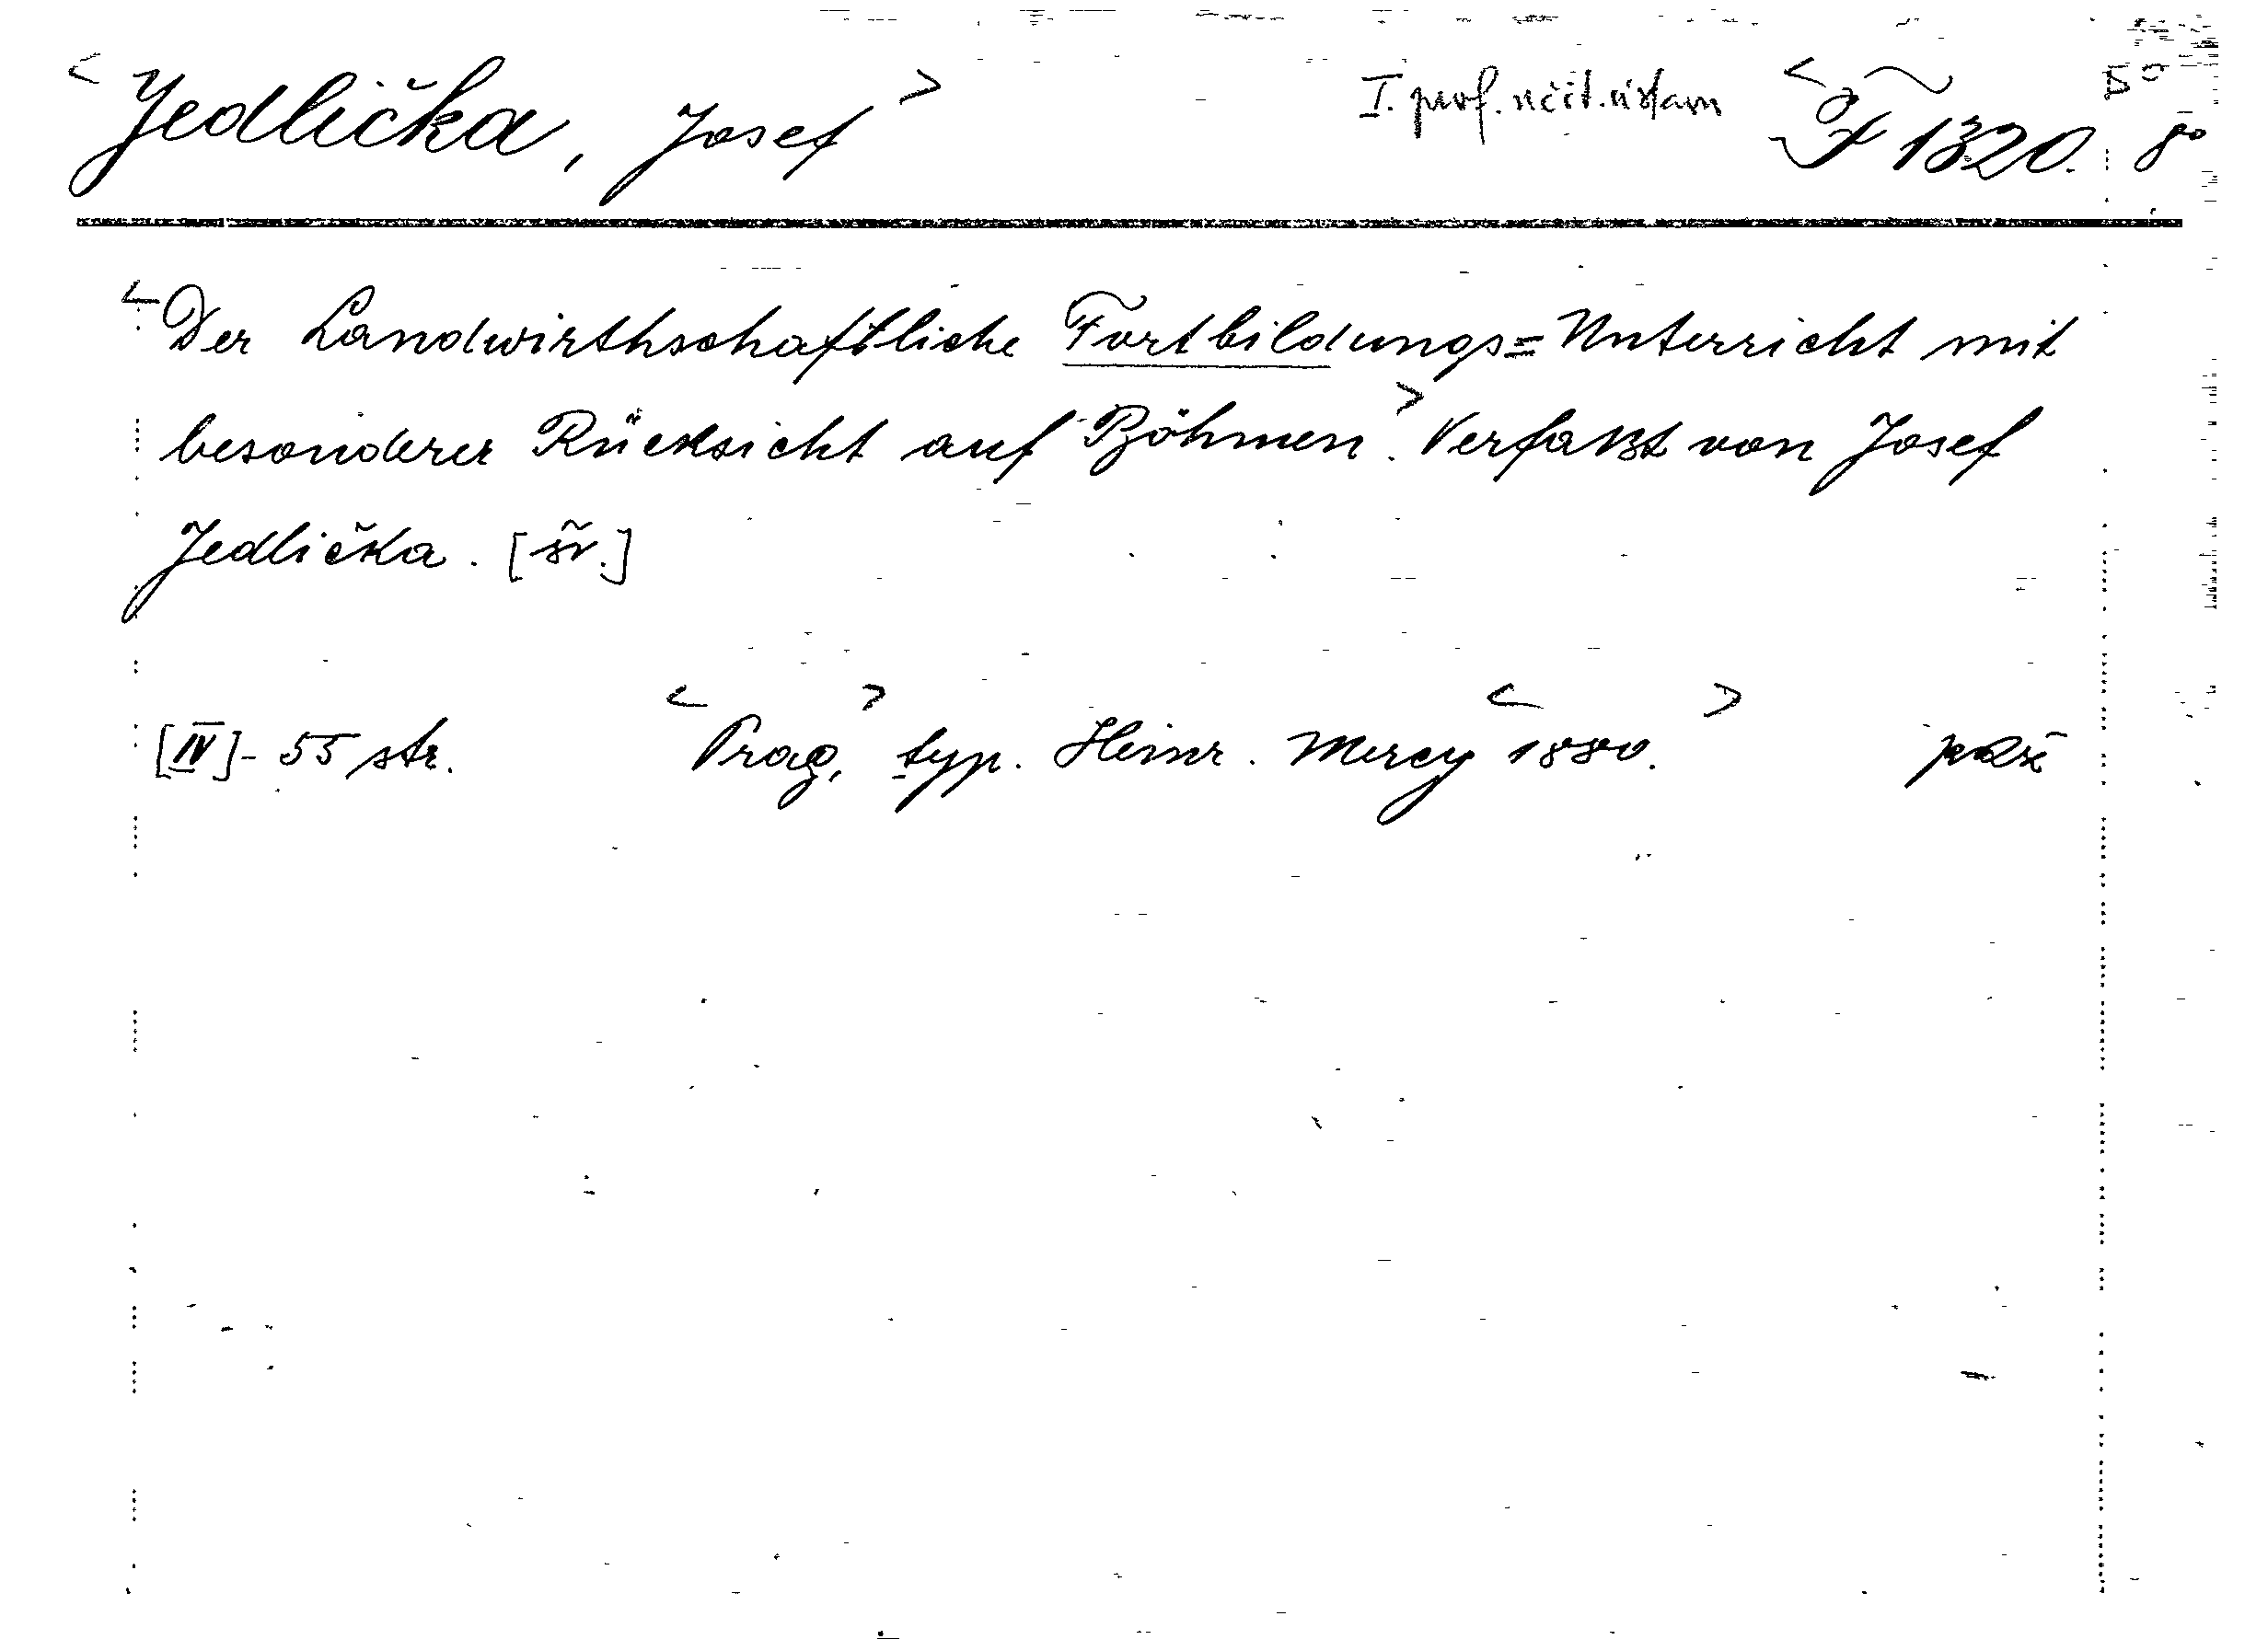 <Jedlička, Josef> I. prof. učit. ústavu <F 1320. 8°
<Der Landwirthschaftliche Fortbildungs=Unterricht mit
besonderer Rücksicht auf Böhmen>. Verfaßt von Josef
Jedlička. [šv.]
[IV]-55 str. <Prag,> typ. Heinr. Mercy <1880.>